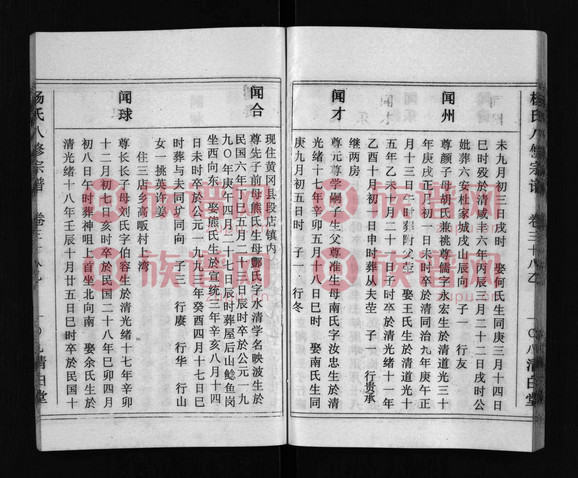 未九月初三日戌时 娶何氏生同庚三月十四日
巳时殁於清咸丰六年丙辰三月二十二日戌时公
妣葬六安杜家城戌辰向 子一 行友
闻州
尊颜子母胡氏兼祧尊儒字永宏生於清道光三十
年庚戌正月初一日未时卒於清同治九年庚午正
月十三日 娶王氏生於清道光十
五年乙未二月 日子时卒於清光绪十一年
乙酉十月初一日申时葬从夫茔 子一 行贵承
继两房
闻才
尊元尊学嗣子生父尊准生母南氏字汝忠生於清
光绪十七年辛卯四月十八日巳时 娶南氏生同
庚九月初五日时 子一 行冬
闻合
现住黄冈县段店镇内
尊先子前母熊氏生母郑氏字水清学名映波生於
民国六年丁巳五月二十日辰时卒於公元一九
九〇年庚午四月二十七日辰时葬屋后山鲶鱼岗
坐西向东 娶熊氏生於宣统三年辛亥八月十四
日未时卒於公元一九九三年癸酉四月十七日巳
时葬与夫同圹同向 子三 行赓 行华 行山
女一挑英许姜
住三店乡高畈村 湾
闻球
尊长长子母刘氏字伯容生於清光绪十七年辛卯
十二月初七日亥时卒於民国二十八年己卯四月
初八日午时葬神咀上首坐北向南 娶余氏生於
清光绪十八年壬辰十月廿五日巳时卒於民国十
杨氏八修宗谱 卷三
一〇九 清白堂